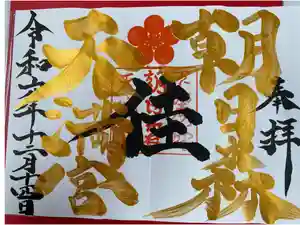 奉拝
朝日森
佳
天満宮
令和六年十二月十四日